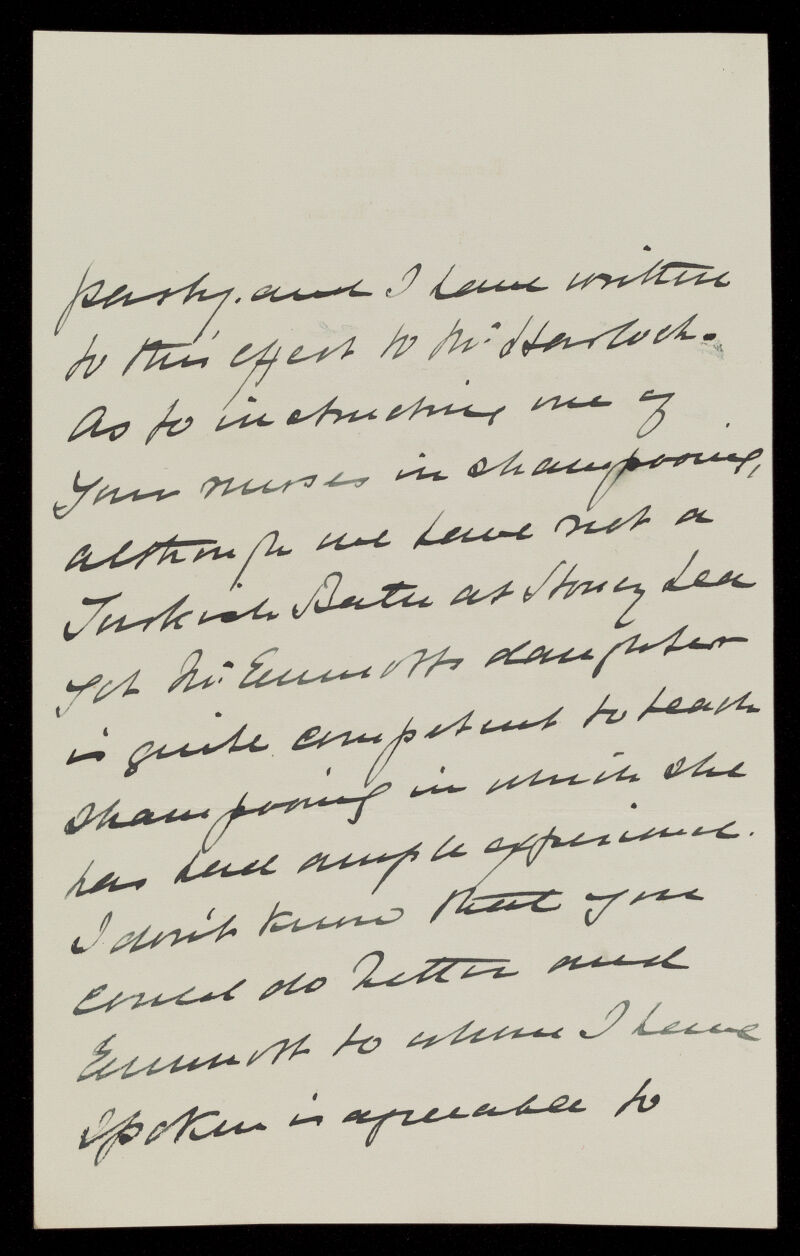 party. and I have written
to this effect to Mr. Harloch.
As to instructing one of
your nurses in shampooing,
although we have not a
Turkish Bath at Stoney Lea
yet Mr. Emmotts daughter
is quite competent to teach
shampooing in which she
has had ample experience.
I don't know that you
could do better and
Emmott to whom I have
spoken is agreeable to